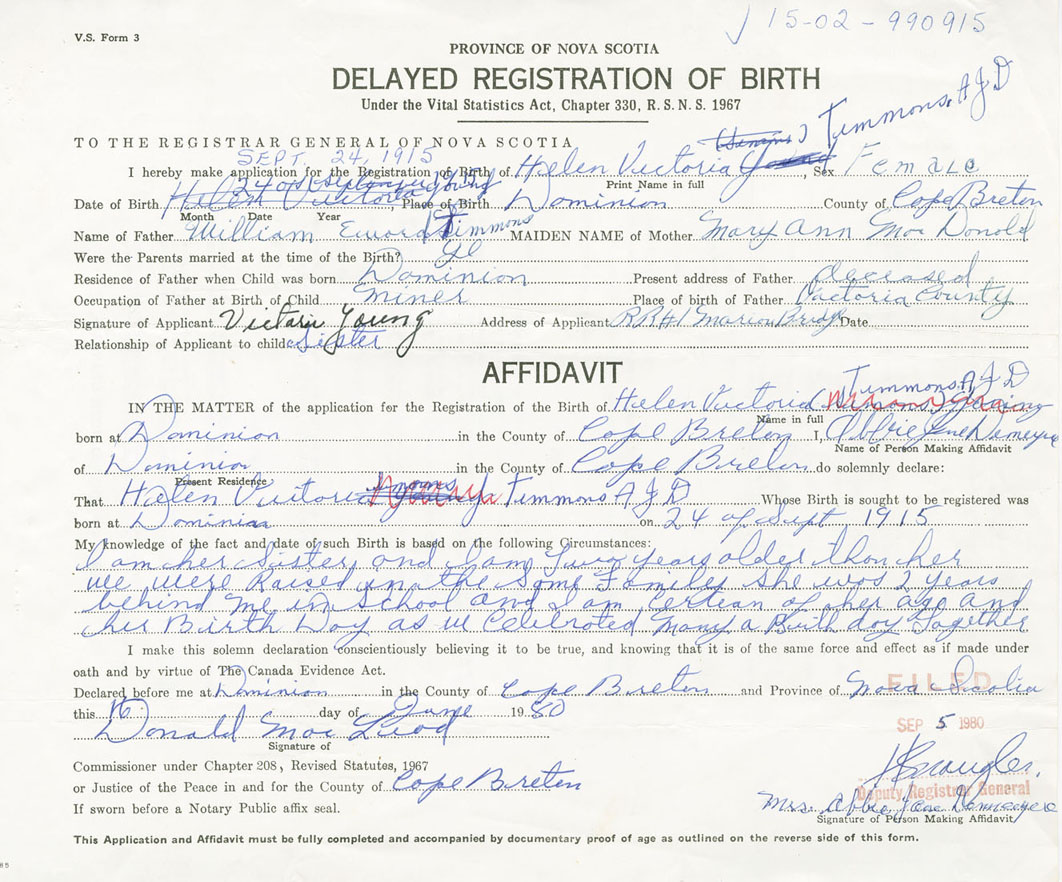 15-02-990915
V.S. Form 3
PROVINCE OF NOVA SCOTIA
DELAYED REGISTRATION OF BIRTH
Under the Vital Statistics Act, Chapter 330, R.S.N.S. 1967
Timmons. A J D
TO THE REGISTRAR GENERAL OF NOVA SCOTIA
SEPT. 24, 1915
I hereby make application for the Registration of Birth of Helen Victoria Young, Sex Female
Print Name in full
Date of Birth Helen Victoria Young, Place of Birth Dominion County of Cape Breton
Month Date Year
Name of Father William Edward Timmons MAIDEN NAME of Mother Mary Ann Mac Donald
Were the Parents married at the time of the Birth?
Residence of Father when Child was born Dominion Present address of Father deceased
Occupation of Father at Birth of Child Miner Place of birth of Father Victoria County
Signature of Applicant Victari Young Address of Applicant RR#1 Marion Bridge Date
Relationship of Applicant to child Sister
AFFIDAVIT
Timmons. A J D
IN THE MATTER of the application for the Registration of the Birth of Helen Victoria
Name in full
born at Dominion in the County of Cape Breton I, Abbie Jane
Name of Person Making Affidavit
of Dominion in the County of Cape Breton do solemnly declare:
Present Residence
That Helen Victoria Timmons A J D Whose Birth is sought to be registered was
born at Dominion on 24 of Sept 1915
My knowledge of the fact and date of such Birth is based on the following Circumstances:
I am her Sister and I am Two years older than her
we were Raised in the Same Family she was 2 years
behind Me in School and I am Certean of her age and
her Birth Day as we Celebrated Many a Birth day Together
I make this solemn declaration conscientiously believing it to be true, and knowing that it is of the same force and effect as if made under
oath and by virtue of The Canada Evidence Act.
Declared before me at Dominion in the County of Cape Breton and Province of Nova Scotia
FILED
this day of June 1980
SEP 5 1980
Donald Mac Leod
Signature of
Commissioner under Chapter 208, Revised Statutes, 1967
or Justice of the Peace in and for the County of Cape Breton
Deputy Registrar General
If sworn before a Notary Public affix seal.
Mrs. Abbie Jane
Signature of Person Making Affidavit
This Application and Affidavit must be fully completed and accompanied by documentary proof of age as outlined on the reverse side of this form.